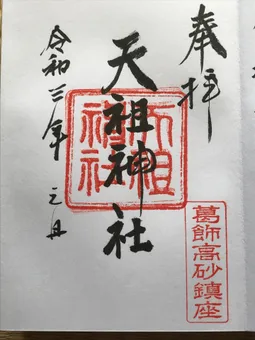 奉拝
天祖神社
令和三年 元旦
天祖神社
葛飾高砂鎮座